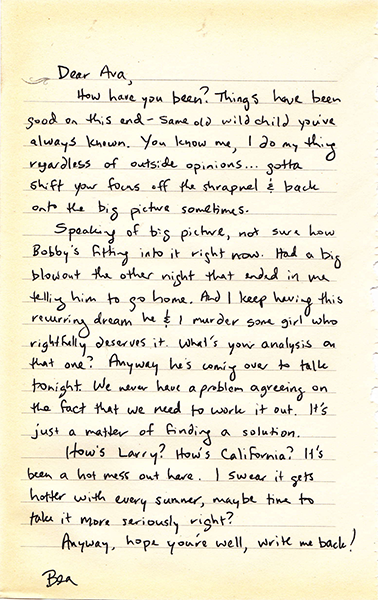 Dear Ava,
How have you been? Things have been
good on this end - same old wild child you've
always known. You know me, I do my thing
regardless of outside opinions... gotta
shift your focus off the shrapnel & back
onto the big picture sometimes.
Speaking of big picture, not sure how
Bobby's fitting into it right now. Had a big
blowout the other night that ended in me
telling him to go home. And I keep having this
recurring dream he & I murder some girl who
rightfully deserves it. What's your analysis on
that one? Anyway he's coming over to talk
tonight. We never have a problem agreeing on
the fact that we need to work it out. It's
just a matter of finding a solution.
How's Larry? How's California? It's
been a hot mess out here. I swear it gets
hotter with every summer, maybe time to
take it more seriously right?
Anyway, hope you're well, write me back!
Bea